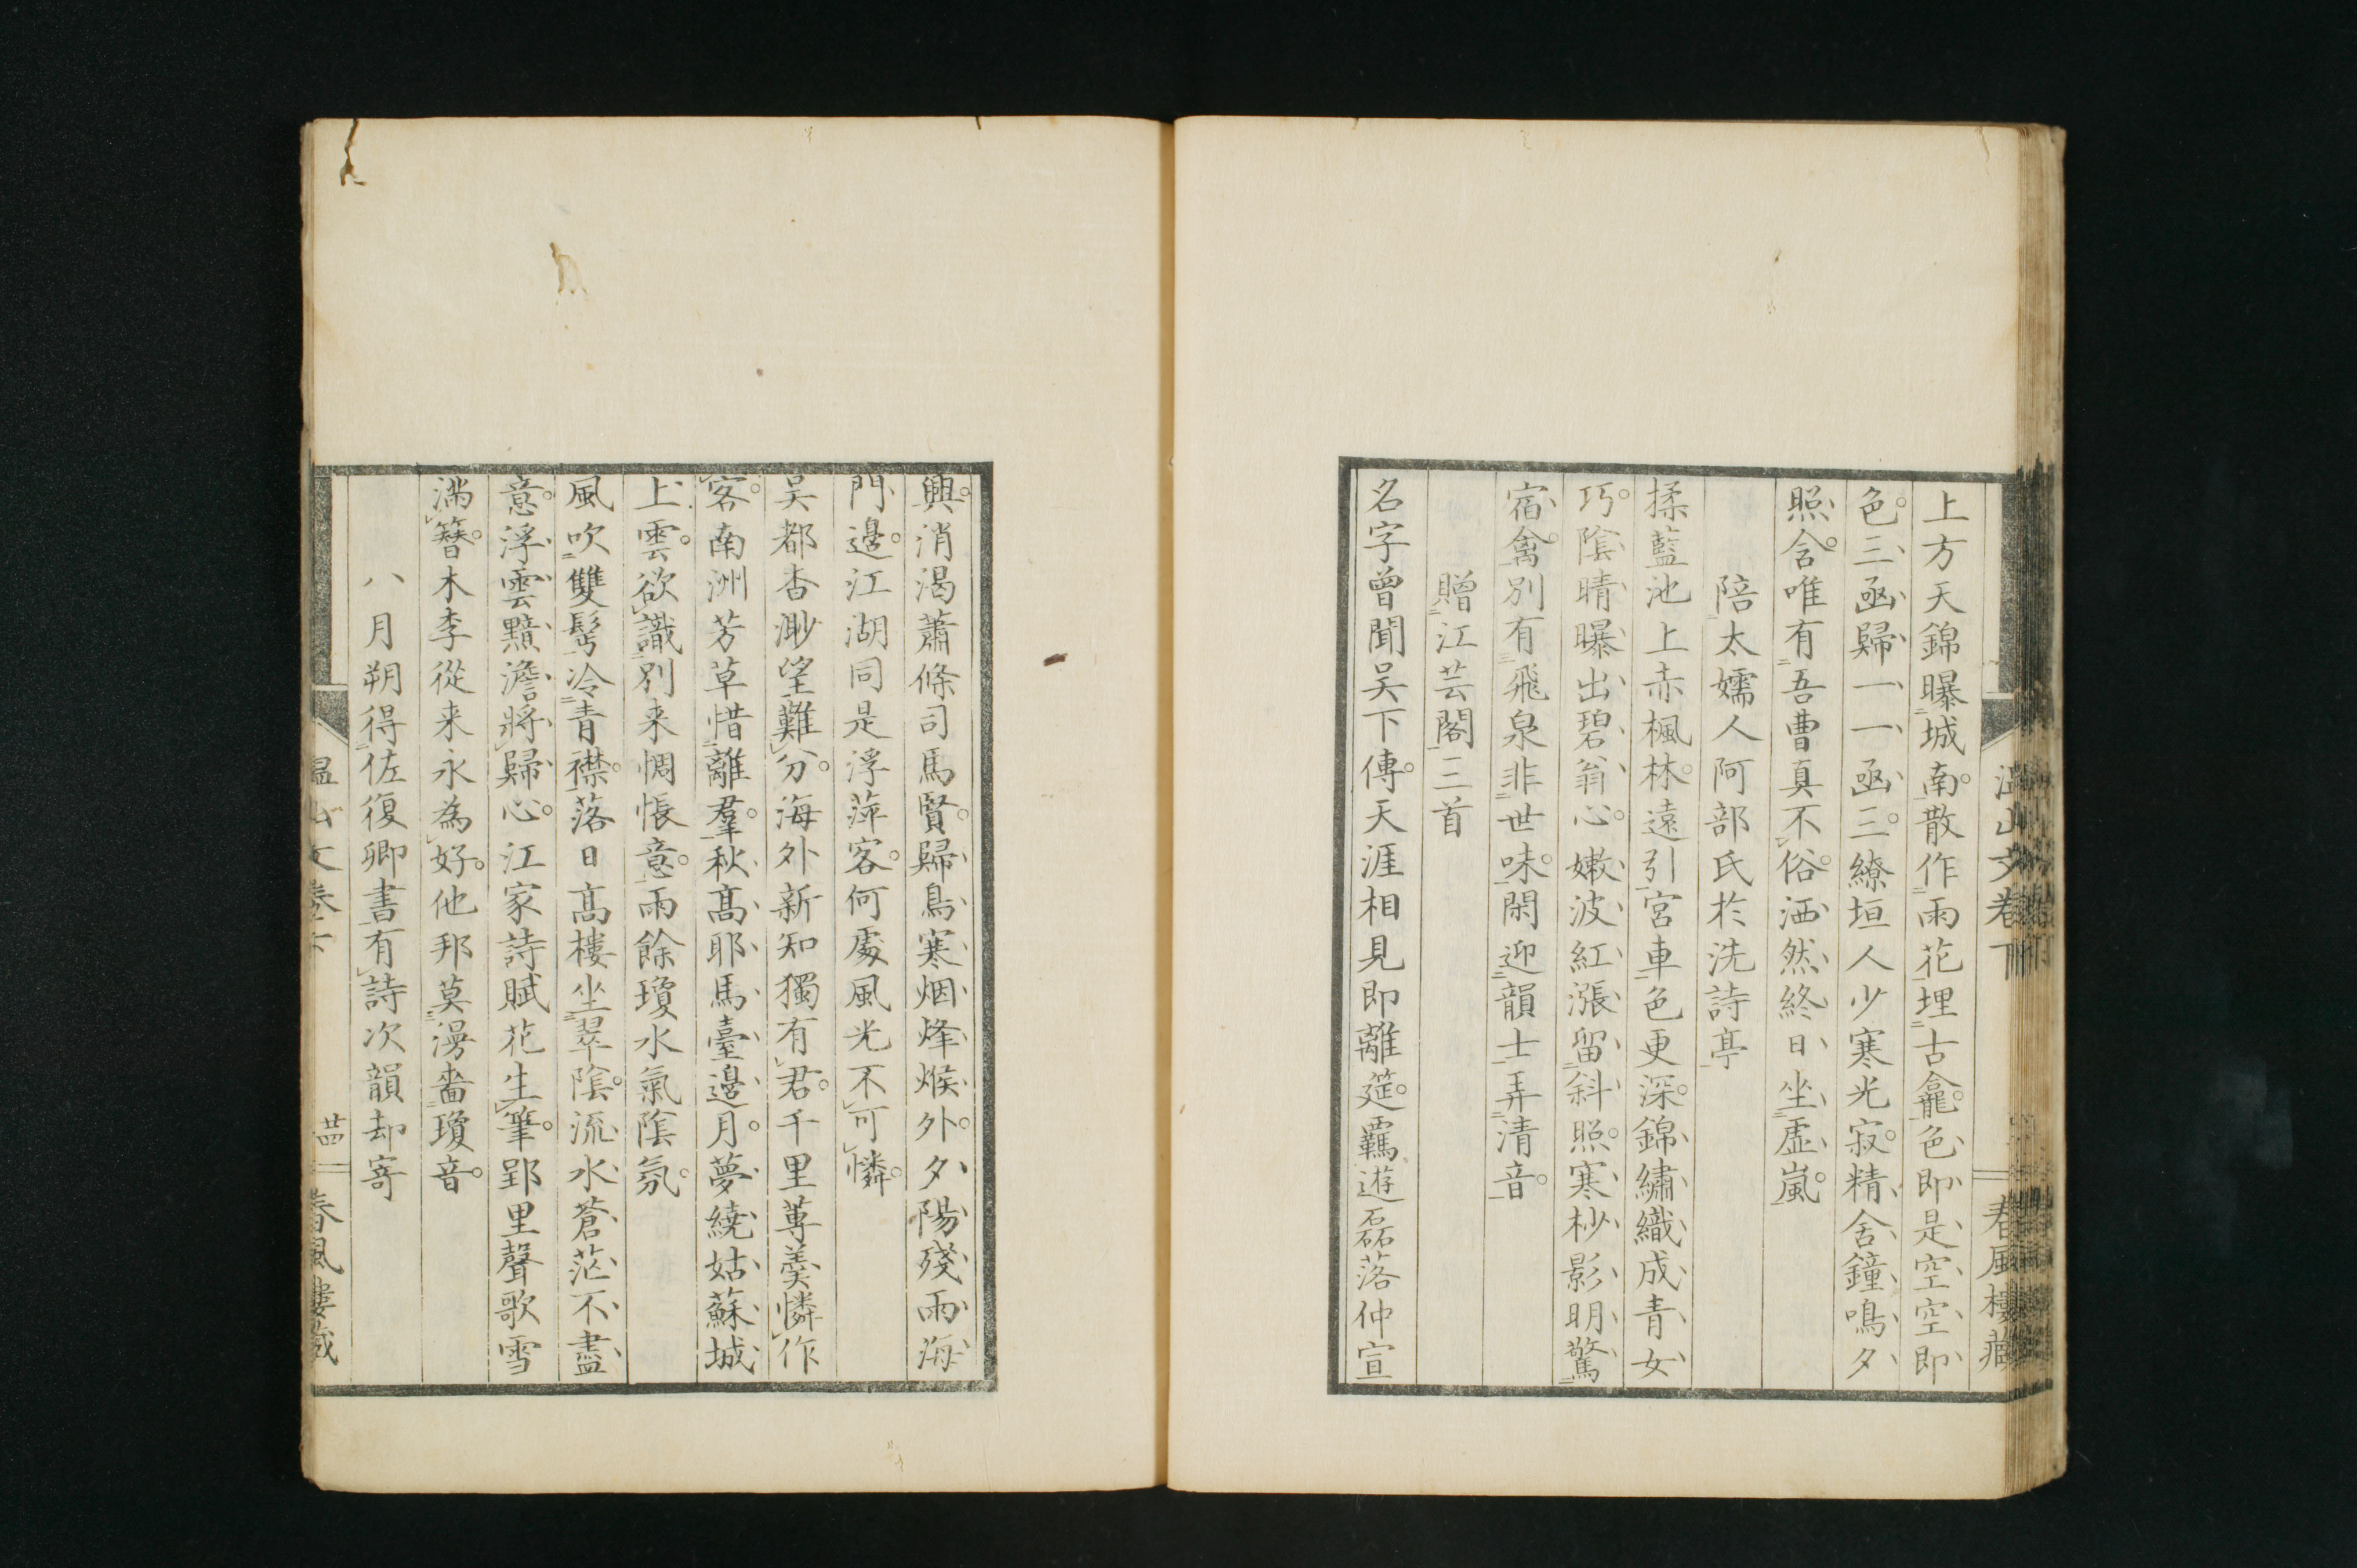 温山文卷下　春風樓藏
上方天錦曝城南。散作雨花埋古龕。色即是空空即
色。三函歸一一函三。繚垣人少寒光寂。精舍鐘鳴夕
照含。唯有吾曹真不俗。洒然終日坐虛嵐。
陪太孺人阿部氏於洗詩亭
揉藍池上赤楓林。遠引宮車色更深。錦繡織成青女
巧。陰晴曝出碧翁心。嫩波紅漲留斜照。寒杪影明驚
宿禽。別有飛泉非世味。閑迎韻士弄清音。
贈江芸閣三首
名字曾聞吴下傳。天涯相見即離筵。羈遊磊落仲宣
興。消渴蕭條司馬賢。歸鳥寒烟烽堠外。夕陽殘雨海
門邊。江湖同是浮萍客。何處風光不可憐。
吴都杳渺望難分。海外新知獨有君。千里蓴羹憐作
客。南洲芳草惜離羣。秋高耶馬臺邊月。夢繞姑蘇城
上雲。欲識別来惆悵意。雨餘瓊水氣陰氛。
風吹雙髩冷青襟。落日高樓坐翠陰。流水蒼茫不盡
意。浮雲黯澹將歸心。江家詩賦花生筆。郢里聲歌雪
滿簪。木李從来永為好。他邦莫漫嗇瓊音。
八月朔得佐復卿書有詩次韻却寄
温山文卷下　廿四　春風樓藏